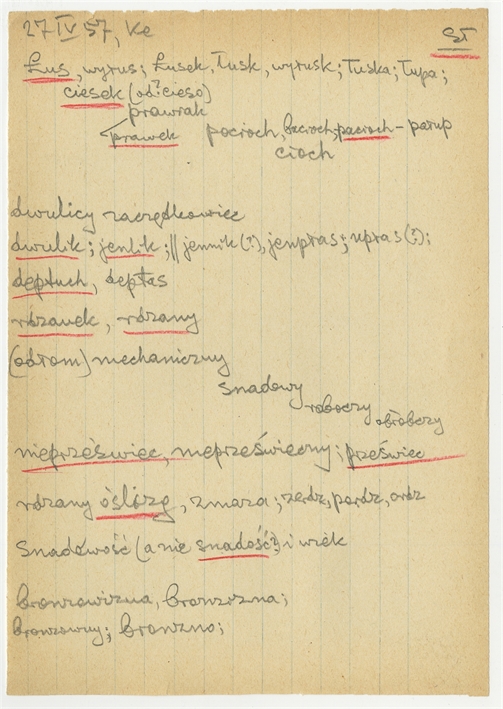 27 IV 57, Ke
SŁ
Łus, wyłus; Łusek, Łusk, wyłusk; Łuska; Łupa;
ciesek (od? cieso)
prawiak
prawek pocioch, bzcioch, pacioch - parup
cioch
dwulicy zaczątkowiec
dwulik; jenlik; // jennik (?), jenpłas; upłas (?);
deptuch, deptas
rdzawek, rdzany
(odłom) mechaniczny
snadowy
roboczy
obróbczy
nieprzeświec, nieprześwieczny; przeświec
rdzany oślizg, zmaza; zerdz, pordz, ordz
Snadowość (a nie snadość?) i wiek
bronzowizna, bronzizna;
bronzowny; bronzno;